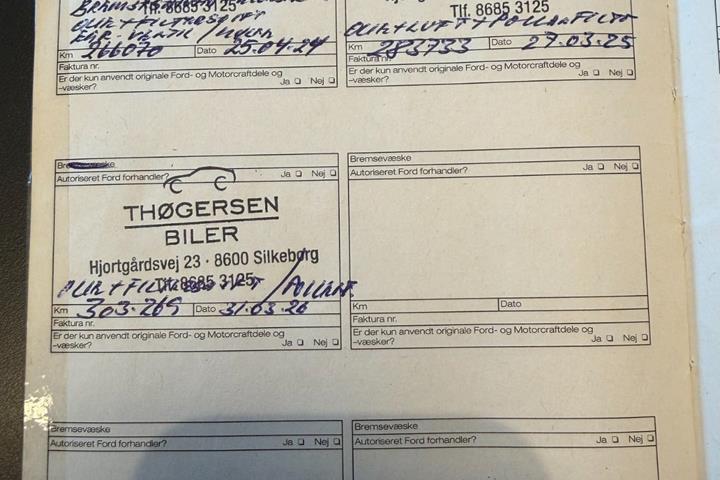 Tlf. 8685 3125
Km 266070 Dato 25.04.24
Faktura nr.
Er der kun anvendt originale Ford- og Motorcraftdele og
–væsker? Ja Nej
Tlf. 8685 3125
OLIE + LUFT + POLLENFILTER
Km 283733 Dato 27.03.25
Faktura nr.
Er der kun anvendt originale Ford- og Motorcraftdele og
–væsker? Ja Nej
Autoriseret Ford forhandler? Ja Nej
THØGERSEN
BILER
Hjortgårdsvej 23 · 8600 Silkeborg
Tlf. 8685 3125
Km 303.269 Dato 31.03.26
Faktura nr.
Er der kun anvendt originale Ford- og Motorcraftdele og
–væsker? Ja Nej
Bremsevæske
Autoriseret Ford forhandler? Ja Nej
Km Dato
Faktura nr.
Er der kun anvendt originale Ford- og Motorcraftdele og
–væsker? Ja Nej
Bremsevæske
Autoriseret Ford forhandler? Ja Nej
Bremsevæske
Autoriseret Ford forhandler? Ja Nej